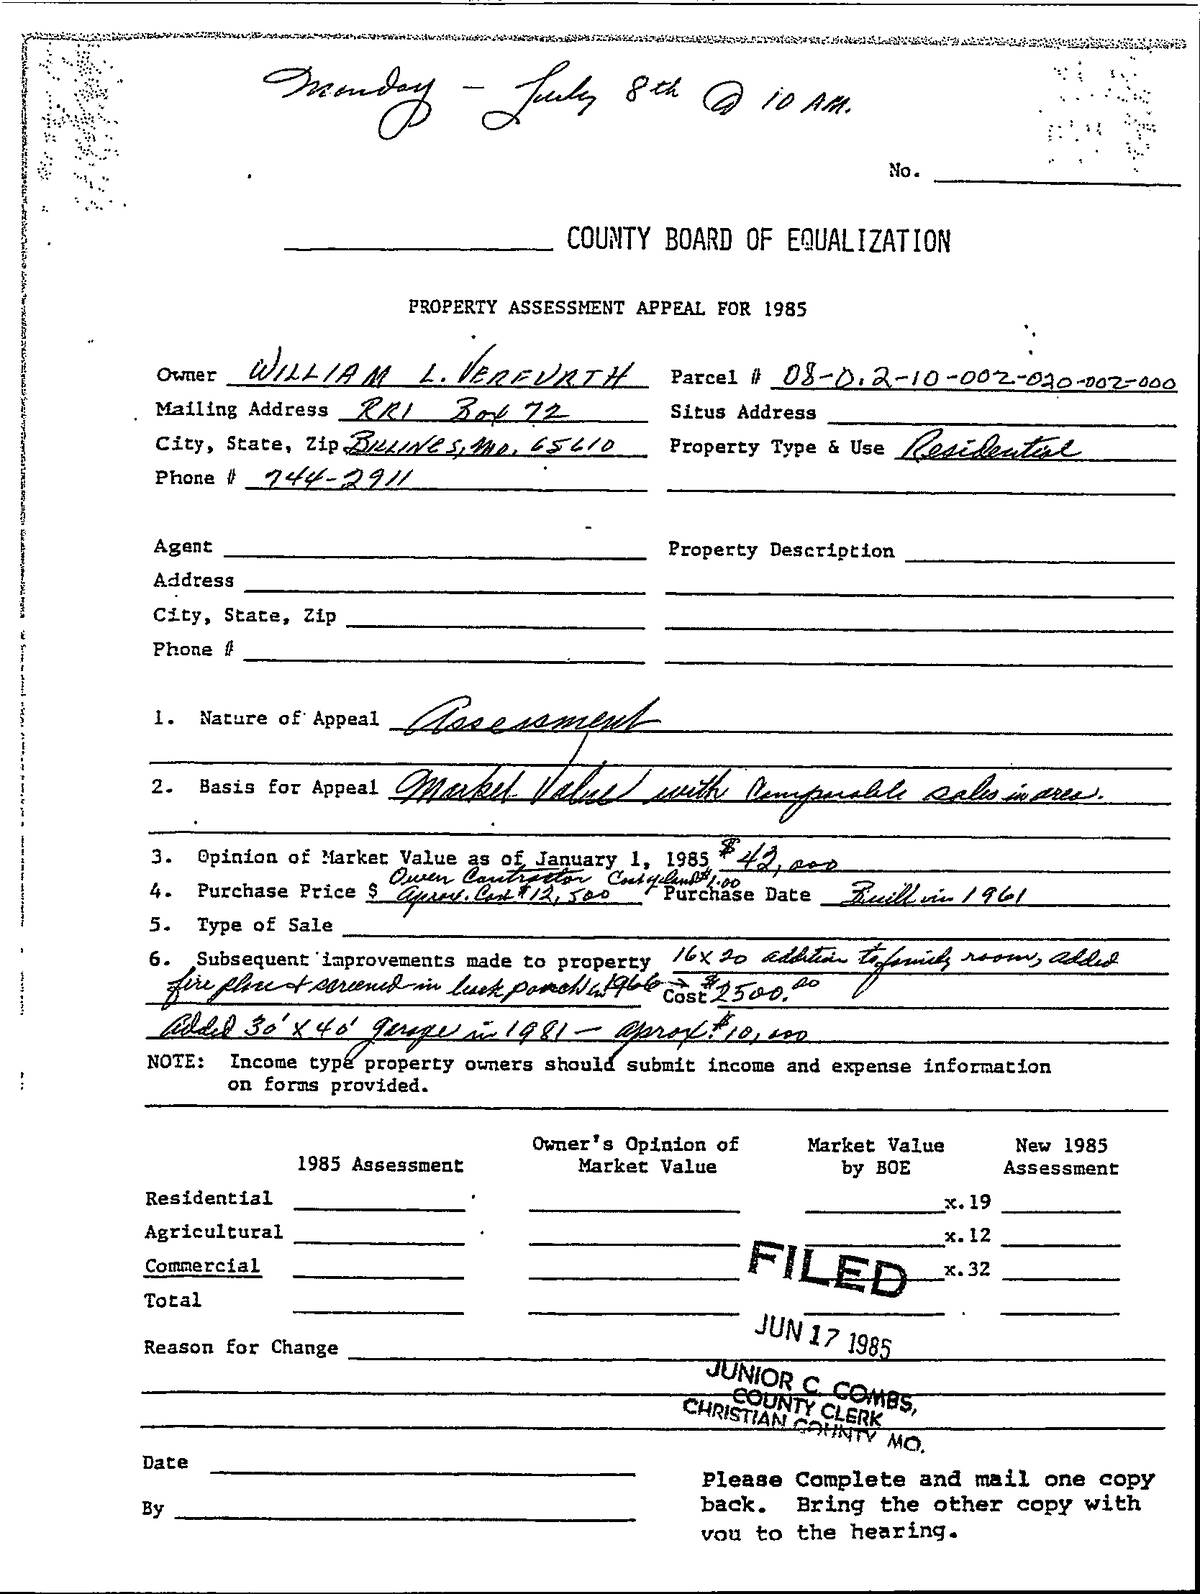 Monday - July 8th @ 10 AM.
No.
COUNTY BOARD OF EQUALIZATION
PROPERTY ASSESSMENT APPEAL FOR 1985
Owner WILLIAM L. VEREURTH Parcel # 08-0.2-10-002-020-002-000
Mailing Address RR1 Box 72 Situs Address
City, State, Zip BILLINGS, MO. 65610 Property Type & Use Residential
Phone # 744-2911
Agent Property Description
Address
City, State, Zip
Phone #
1. Nature of Appeal Assessment
2. Basis for Appeal Market Value with Comparable sales in area.
3. Opinion of Market Value as of January 1, 1985 $42,000
Owen Contractor Cost of land $1.00
4. Purchase Price $ Aprox. Cost $12,500 Purchase Date Built in 1961
5. Type of Sale
6. Subsequent improvements made to property 16x20 addition to family room, added
fire place & screened in back porch in 1966 → Cost $2500.00
Added 30' X 40' garage in 1981 - aprox. $10,000
NOTE: Income type property owners should submit income and expense information
on forms provided.
1985 Assessment Owner's Opinion of Market Value Market Value by BOE New 1985 Assessment
Residential x.19
Agricultural x.12
Commercial x.32
Total
FILED
JUN 17 1985
Reason for Change
JUNIOR C. COMBS,
COUNTY CLERK
CHRISTIAN COUNTY MO.
Date
By
Please Complete and mail one copy
back. Bring the other copy with
you to the hearing.